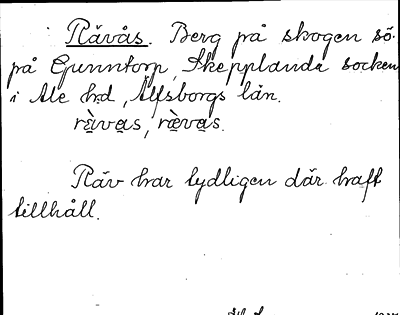 Rävås. Berg på skogen sö.
på Gunntorp, Skepplanda socken
i Ale hd, Älfsborgs län.
rὰvas, rævas.
Räv har tydligen där haft
tillhåll.